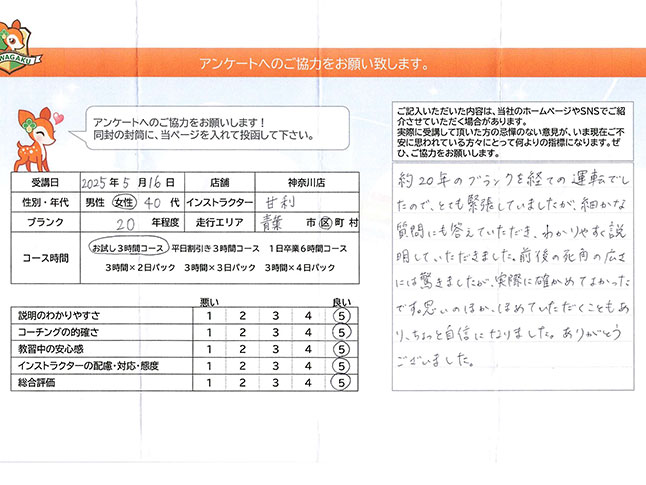 WAGAKU
アンケートへのご協力をお願い致します。
アンケートへのご協力をお願いします！
同封の封筒に、当ページを入れて投函して下さい。
ご記入いただいた内容は、当社のホームページやSNSでご紹
介させていただく場合があります。
実際に受講して頂いた方の忌憚のない意見が、いま現在ご不
安に思われている方々にとって何よりの指標になります。ぜ
ひ、ご協力をお願いします。
受講日 2025年5月16日 店舗 神奈川店
性別・年代 男性 女性 40代 インストラクター 甘利
ブランク 20年程度 走行エリア 青葉 市区町村
コース時間 お試し3時間コース 平日割引き3時間コース 1日卒業6時間コース
3時間×2日パック 3時間×3日パック 3時間×4日パック
悪い 良い
説明のわかりやすさ 1 2 3 4 5
コーチングの的確さ 1 2 3 4 5
教習中の安心感 1 2 3 4 5
インストラクターの配慮・対応・態度 1 2 3 4 5
総合評価 1 2 3 4 5
約20年のブランクを経ての運転でし
たので、とても緊張していましたが、細かな
質問にも答えていただき、わかりやすく説
明していただきました。前後の死角の広さ
には驚きましたが、実際に確かめてよかった
です。思いのほか、ほめていただくこともあ
り、ちょっと自信になりました。ありがとう
ございました。